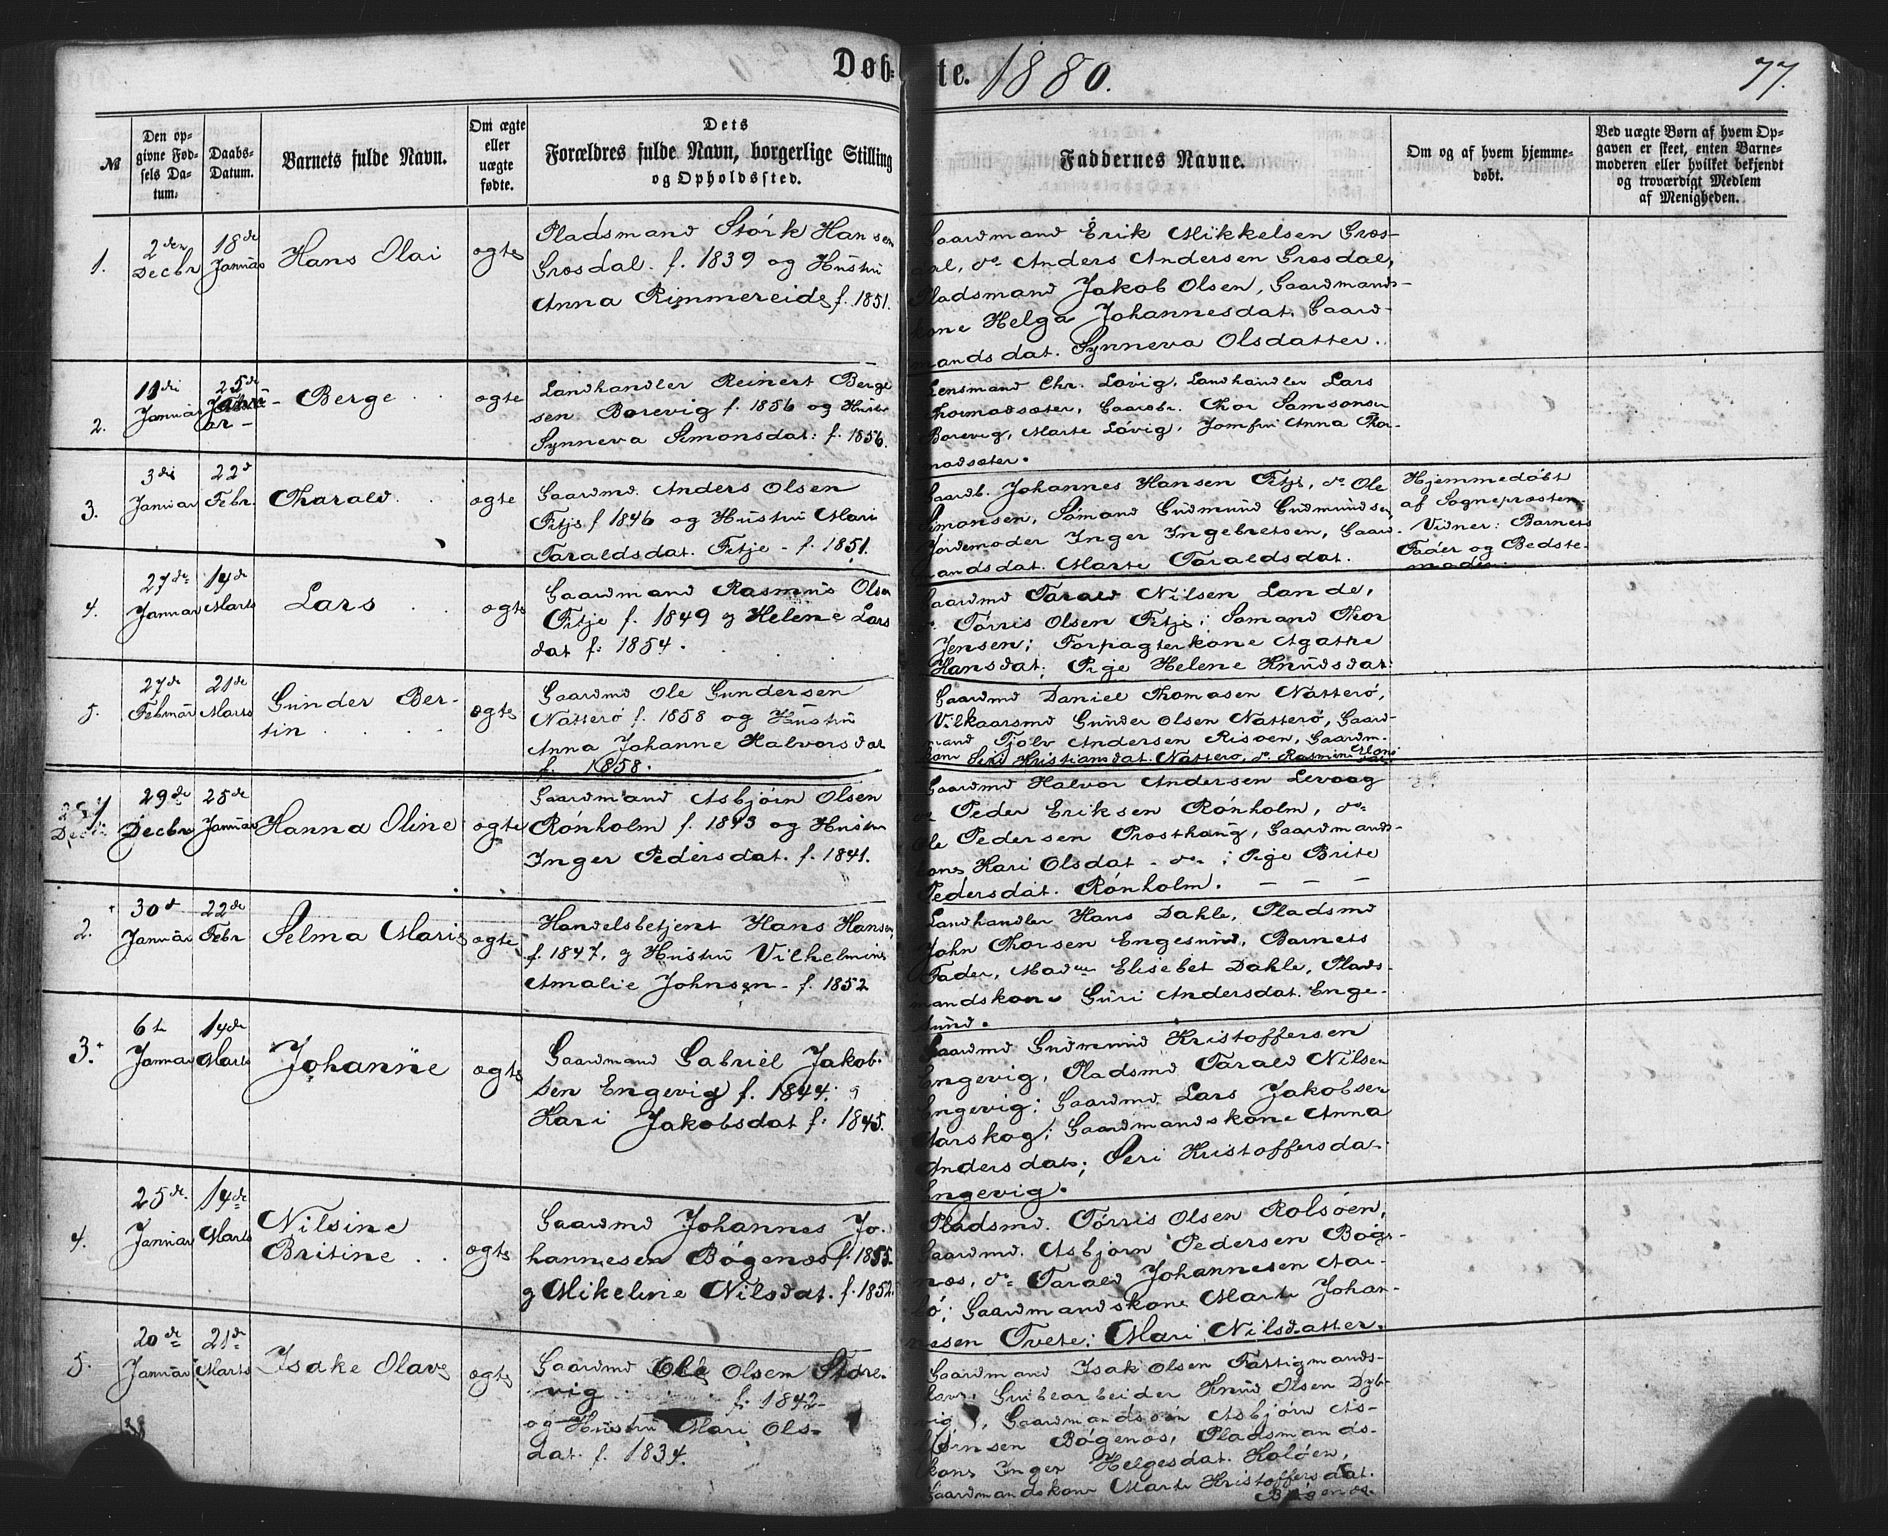 Døbte. 1880.
77.
№
Den opgivne Fødsels Datum.
Daabs-Datum.
Barnets fulde Navn.
Om ægte eller uægte fødte.
Dets Forældres fulde Navn, borgerlige Stilling og Opholdssted.
Faddernes Navne.
Om og af hvem hjemmedøbt.
Ved uægte Børn af hvem Opgaven er skeet, enten Barnemoderen eller hvilket bekjendt og troværdigt Medlem af Menigheden.
1.
2den Decbr
18de Januar
Hans Olai
ægte
Pladsmand Størk Hansen
Græsdal. f. 1839 og Hustru
Anna Rimmereide f. 1851.
Gaardmand Erik Mikkelsen Græs-
dal, do Anders Andersen Græsdal,
Pladsmand Jakob Olsen, Gaardmands-
kone Helga Johannesdat. Gaard-
mandsdat. Synneva Olsdatter.
2.
11di Januar
25de
Berge
ægte
Landhandler Reinert Berge
sen Borevig f. 1856 og Hustru
Synneva Simonsdat: f. 1856.
Lensmand Chr. Løvig, Landhandler Lars
Thormodsæter, Gaardbr. Thor Samsonsen
Borevig, Marte Løvig, Jomfru Anna Thor-
modsæter.
3.
3di Januar
22d Febr.
Tharald
ægte
Gaardmd. Anders Olsen
Fitje f 1846 og Hustru Mari
Taraldsdat. Fitje - f. 1851.
Gaardb. Johannes Hansen Fitje, do Ole
Simonsen, Sømand Gudmund Gudmundsen
Jordemoder Inger Ingebretsen, Gaard
mandsdat. Marte Taraldsdat.
Hjemmedøbt
af Sognepræsten.
Vidner: Barnets
Fader og Bedste-
moder.
4.
27de Januar
14de Marts
Lars
ægte
Gaardmand Rasmus Olsen
Fitje f. 1849 og Helene Lars
dat f: 1854.
Gaardmd Tarald Nilsen Lande,
do Tørris Olsen Fitje; Sømand Thor
Jensen; Forpagterkone Agathe
Hansdat; Pige Helene Knudsdat:
5.
27de Februar
21de Marts
Gunder Ber-
tin
ægte
Gaardmd Ole Gundersen
Natterø f. 1858 og Hustru
Anna Johanne Halvorsdat
f. 1858.
Gaardmd Daniel Thomasen Natterø,
Vilkaarsmd Gunder Olsen Natterø, Gaard-
mand Tjølv Andersen Risøen, Gaardm-
kone Siri Kristiansdat. Natterø, do Rasmine
29de Decbr
25de Januar
Hanna Oline
ægte
Gaardmand Asbjørn Olsen
Rønholm f. 1843 og Hustru
Inger Pedersdat. f. 1841.
Gaardmd Halvor Andersen Levaag
do Peder Eriksen Rønholm, do
Ole Pedersen Præsthaug, Gaardmands-
kone Kari Olsdat - do - ; Pige Brite
Pedersdat. Rønholm.
2.
30d Januar
22de Febr
Selma Marie
ægte
Handelsbetjent Hans Hansen
f. 1847, og Hustru Vilhelmine
Amalie Johnsen - f. 1852
Landhandler Hans Dahle, Pladsmd
John Thorsen Engesund, Barnets
Fader, Madme Elisebet Dahle, Plads-
mandskone Guri Andersdat. Enge-
sund.
3.
6te Januar
14de Marts
Johanne
ægte
Gaardmand Gabriel Jakob-
sen Engevig f. 1844. og
Kari Jakobsdat f. 1845.
Gaardmd Gudmund Kristoffersen
Engevig, Pladsmd Tarald Nilsen
Engevig; Gaardmd Lars Jakobsen
Aarskog; Gaardmandskone Anna
Andersdat; Siri Kristoffersdat
Engevig.
4.
25de Januar
14de Marts
Nilsine
Britine
ægte
Gaardmd Johannes Jo-
hannesen Bøgenæs f. 1855.
og Mikeline Nilsdat. f. 1852.
Pladsmd. Tørris Olsen Rolsøen,
Gaardmd. Asbjørn Pedersen Bøge-
næs, do Tarald Johannesen
Gaardmandskone Marte Johan-
nesen Tvete; Mari Nilsdatter.
5.
20de Januar
21de Marts
Isake Olave
ægte
Gaardmd Ole Olsen Store-
vig f. 1842
og Hustru Mari Ols-
dat. f. 1834.
Gaardmand Isak Olsen Fattigmands-
Grubearbeider Knud Olsen Dyb-
vig, Gaardmandssøn Asbjørn As-
bjørnsen Bøgenæs, Pladsmands-
kone Inger Helgesdat. Koløen,
Gaardmandskone Marte Kristoffersdat.
Bøgenæs.